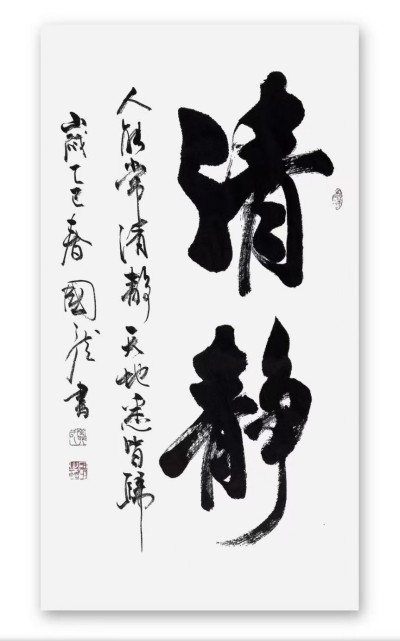 清静
人能常清静天地悉皆歸
歲乙巳春國龍書